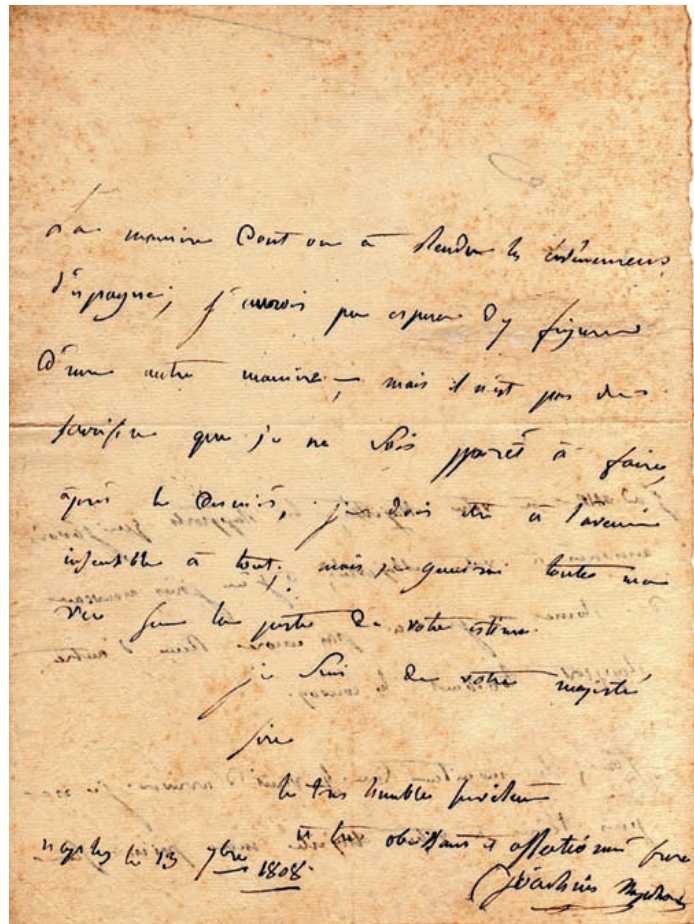 La manière dont on a rendu les évènemens
d'espagne; j'aurois pu esperer d'y figurer
d'une autre manière, mais il n'est pas de
sacrifice que je ne sois prêt à faire,
après le dernier, je dois être à l'avenir
insensible à tout, mais je gemirai toute ma
vie sur la perte de votre estime.
je suis de votre majesté
sire
le très humble serviteur
et tres obeissant et affectionné frere
naples le 13 7bre 1808.
Joachim Napoleon